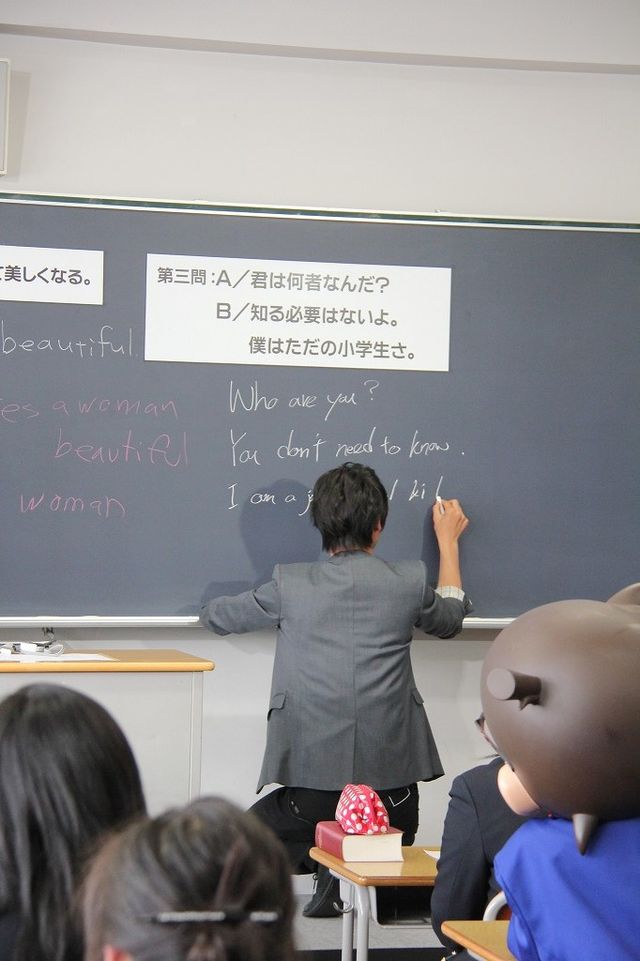 て美しくなる。
第三問:A/君は何者なんだ?
B/知る必要はないよ。
僕はただの小学生さ。
beautiful.
es a woman
beautiful
woman
Who are you?
You don't need to know.
I am a